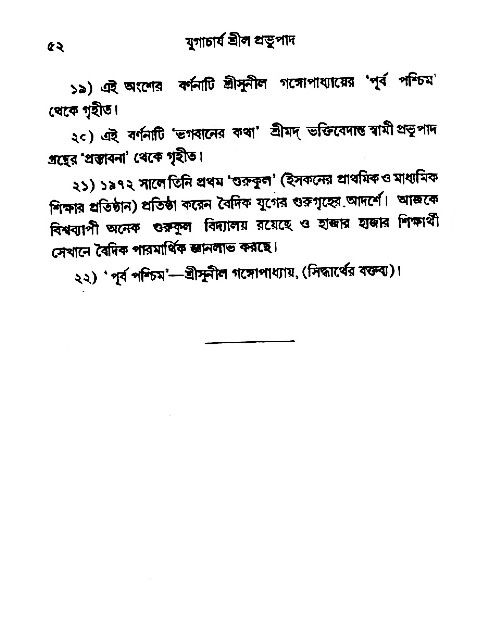 ৫২
যুগাচার্য শ্রীল প্রভুপাদ
১৯) এই অংশের বর্ণনাটি শ্রীসুনীল গঙ্গোপাধ্যায়ের ‘পূর্ব পশ্চিম’
থেকে গৃহীত।
২০) এই বর্ণনাটি ‘ভগবানের কথা’ শ্রীমদ্ ভক্তিবেদান্ত স্বামী প্রভুপাদ
গ্রন্থের ‘প্রস্তাবনা’ থেকে গৃহীত।
২১) ১৯৭২ সালে তিনি প্রথম ‘গুরুকুল’ (ইসকনের প্রাথমিক ও মাধ্যমিক
শিক্ষার প্রতিষ্ঠান) প্রতিষ্ঠা করেন বৈদিক যুগের গুরুগৃহের আদর্শে। আজকে
বিশ্বব্যাপী অনেক গুরুকুল বিদ্যালয় রয়েছে ও হাজার হাজার শিক্ষার্থী
সেখানে বৈদিক পারমার্থিক জ্ঞানলাভ করছে।
২২) ‘পূর্ব পশ্চিম’—শ্রীসুনীল গঙ্গোপাধ্যায়, (সিদ্ধার্থের বক্তব্য)।